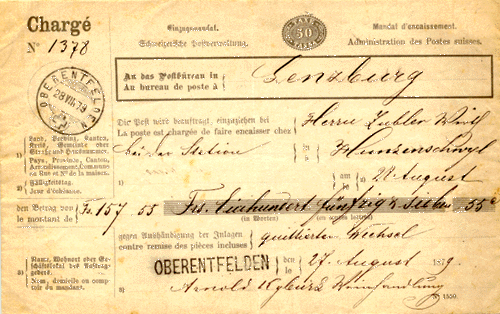 Chargé
Einzugsmandat.
TAXE 50 TAXE
Mandat d'encaissement.
Nº 1378
Schweizerische Postverwaltung.
Administration des Postes suisses.
OBERENTFELDEN
28 VIII 79
An das Postbüreau in
Au bureau de poste à
Lenzburg
Die Post wird beauftragt, einzuziehen bei
La poste est chargée de faire encaisser chez
Herrn
bei der Station
in
à
Hunzenschwyl
Land, Provinz, Kanton,
Pays, Province, Canton,
Rue et Nº de la maison.
am
le
28 August
Fälligkeitstag.
Jour d'échéance.
den Betrag von
le montant de
Frs. 157 55
Frs. Einhundert fünfzig & Sieben 55 c
(in Worten) (en toutes lettres)
gegen Aushändigung der Anlagen
contre remise des pièces incluses
quittierten Wechsel
Name, Wohnort oder Geschäftslokal des Auftraggebers.
Nom, domicile ou comptoir du mandant.
OBERENTFELDEN
den
le
27. August 1879.
Arnold Kyburz Weinhandlung